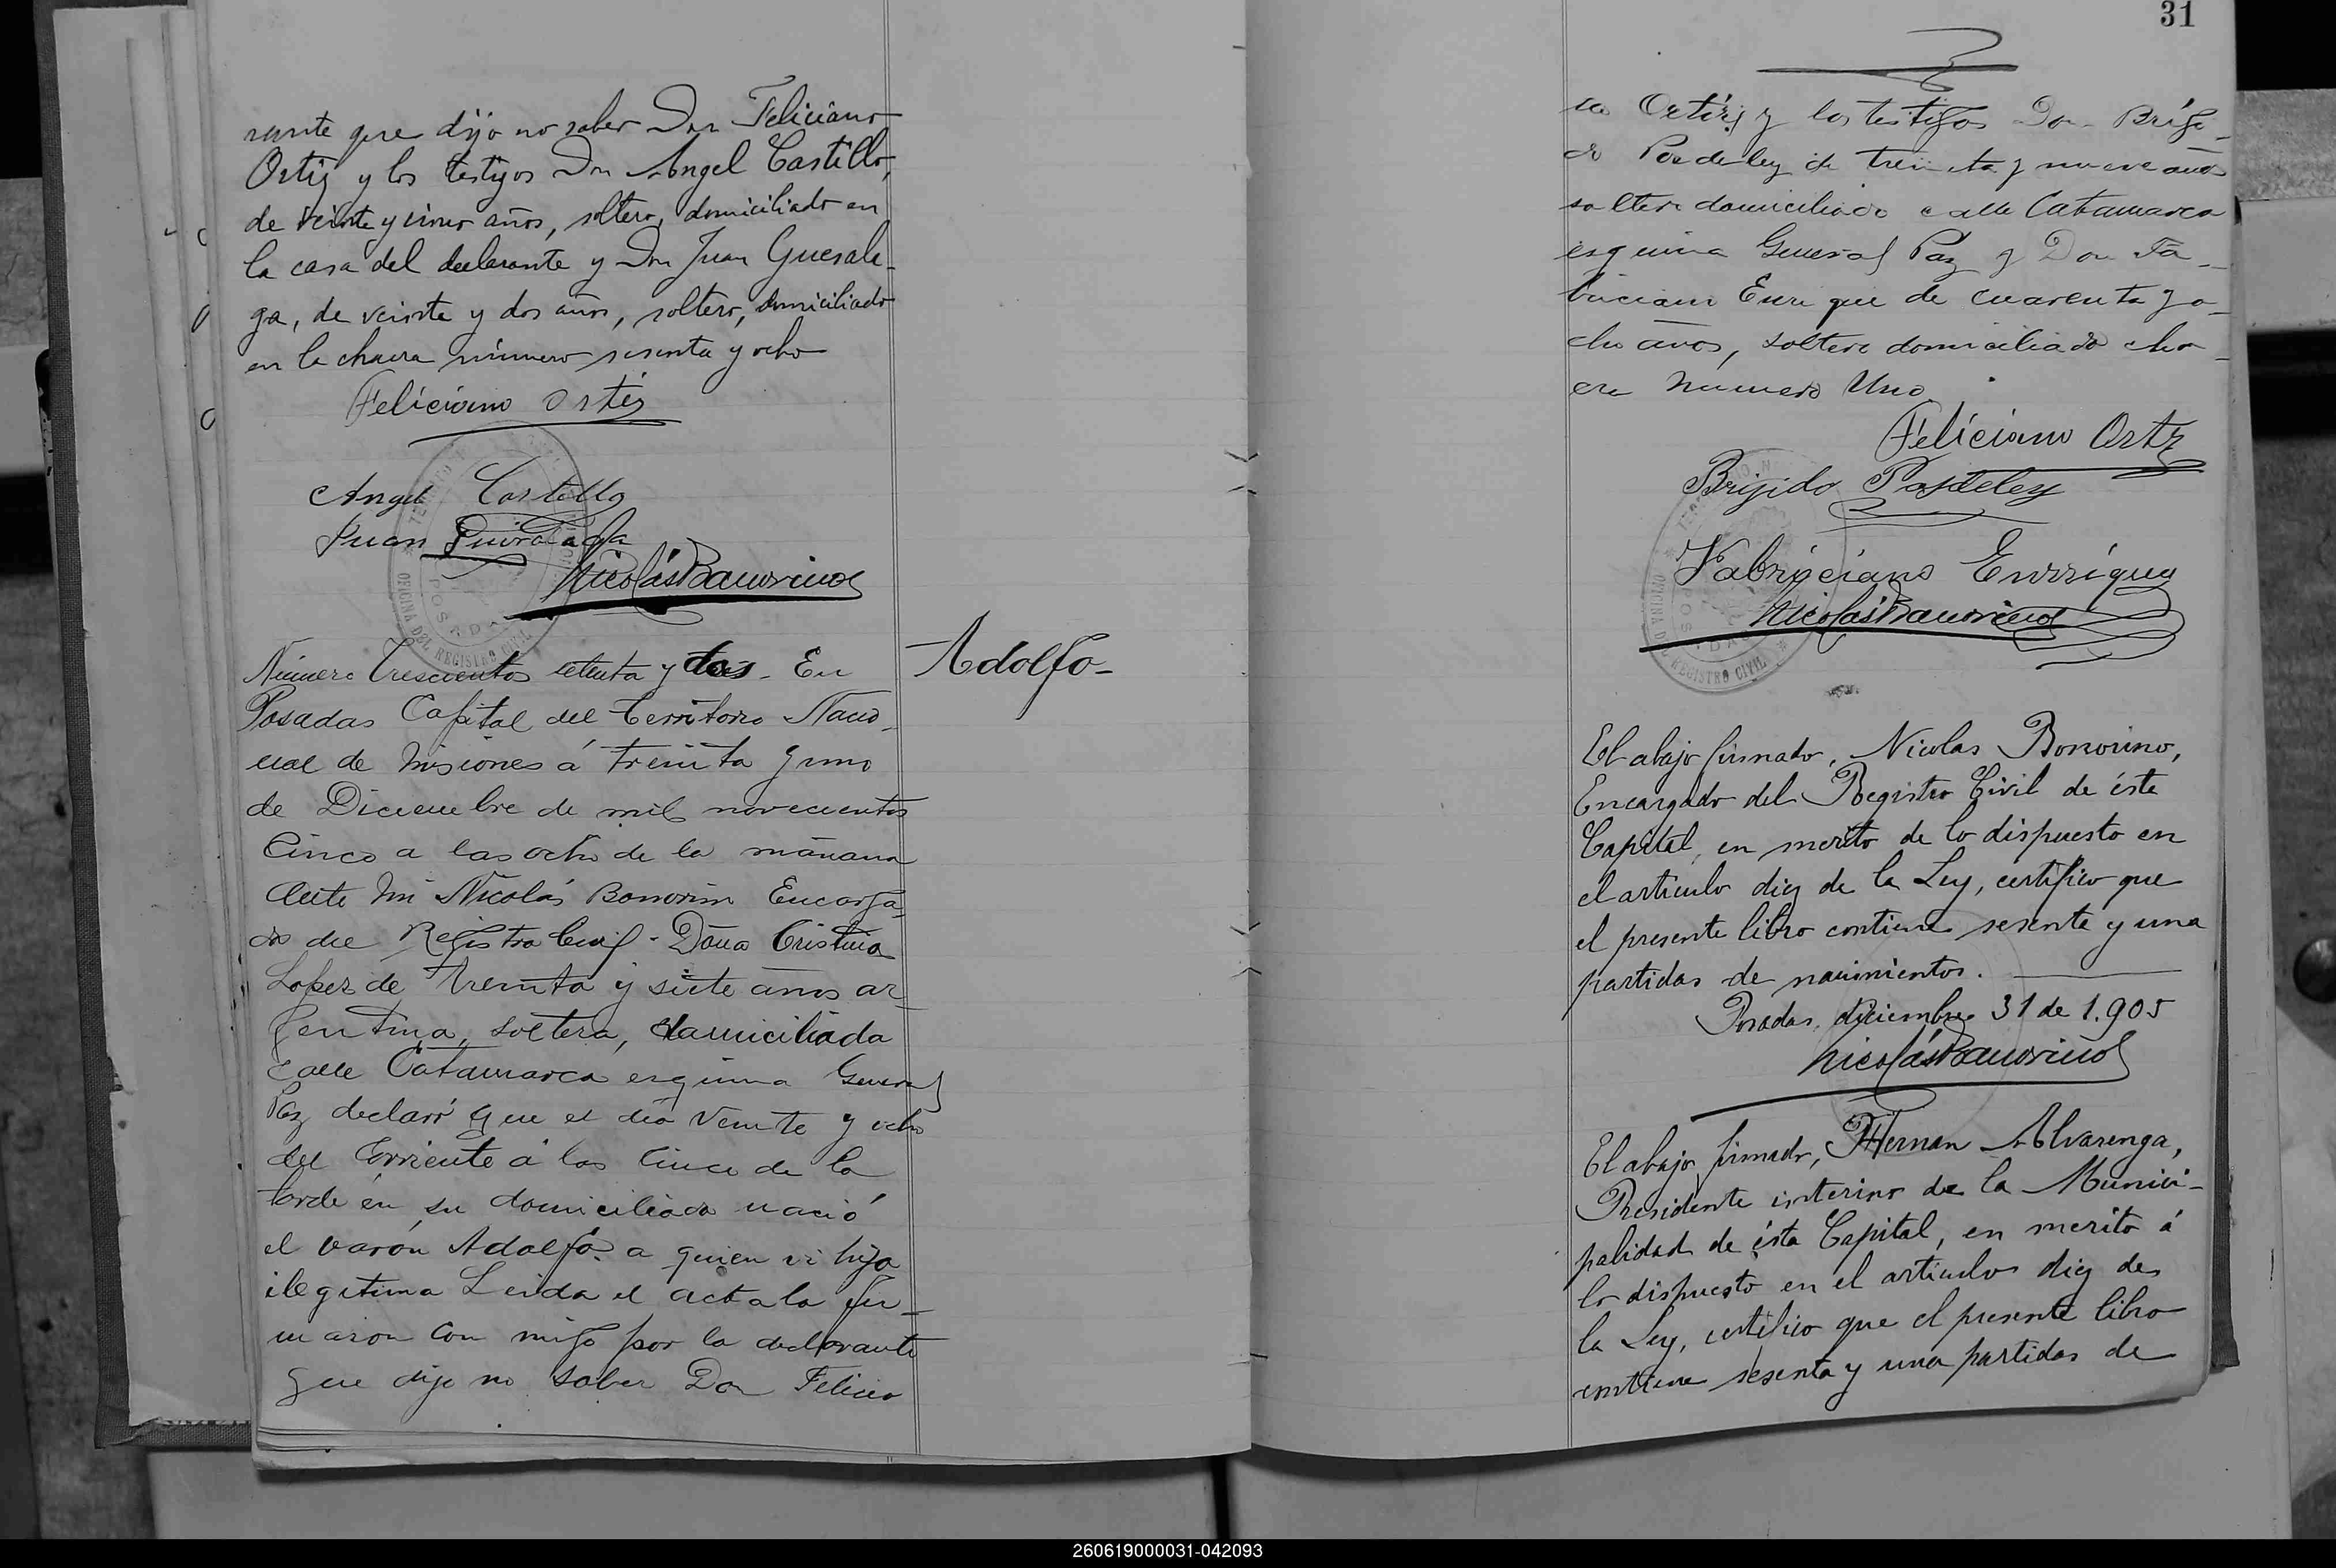 rante que dijo no saber Don Feliciano
Ortiz y los testigos Don Angel Castillo,
de veinte y cinco años, soltero, domiciliado en
la casa del declarante y Don Juan Guesala-
ga, de veinte y dos años, soltero, domiciliado
en la chacra número sesenta y ocho
Feliciano Ortiz
Angel Castillo
Juan
Nicolás Bonorino
OFICINA DEL REGISTRO CIVIL
POSADAS
Número Trescientos setenta y dos. En
Posadas Capital del Territorio Nacio-
nal de Misiones á treinta y uno
de Diciembre de mil novecientos
Cinco a las ocho de la mañana
Ante mi Nicolás Bonorino Encarga-
do del Registro Civil - Doña Cristina
Lopez de treinta y siete años ar-
gentina, soltera, domiciliada
calle Catamarca esquina General
Paz declaró que el dia veinte y ocho
del Corriente á las Cinco de la
tarde en su domiciliado nació
el varón Adolfo a quien vi hijo
ilegitima Leida el acta la fir-
maron con migo por la declarante
que dijo no saber Don Felicia
Adolfo-
31
no Ortiz y los testigos Don Brigi-
do Posdeley de treinta y nueve años
soltero domiciliado calle Catamarca
esquina General Paz y Don Fa-
briciano Enrique de cuarenta y o-
cho años, soltero domiciliado cha-
cra número Uno.
Feliciano Ortiz
Brigido Posdeley
Fabriciano Enrrique
Nicolás Bonorino
REGISTRO CIVIL
El abajo firmado, Nicolas Bonorino,
Encargado del Registro Civil de ésta
Capital, en merito de lo dispuesto en
el articulo diez de la Ley, certifico que
el presente libro contiene sesenta y una
partidas de nacimientos.
Posadas, diciembre 31 de 1.905
Nicolás Bonorino
El abajo firmado, Hernan Alvarenga,
Presidente interino de la Munici-
palidad de ésta Capital, en merito á
lo dispuesto en el articulo diez de
la Ley, certifico que el presente libro
contiene sesenta y una partidas de
260619000031-042093